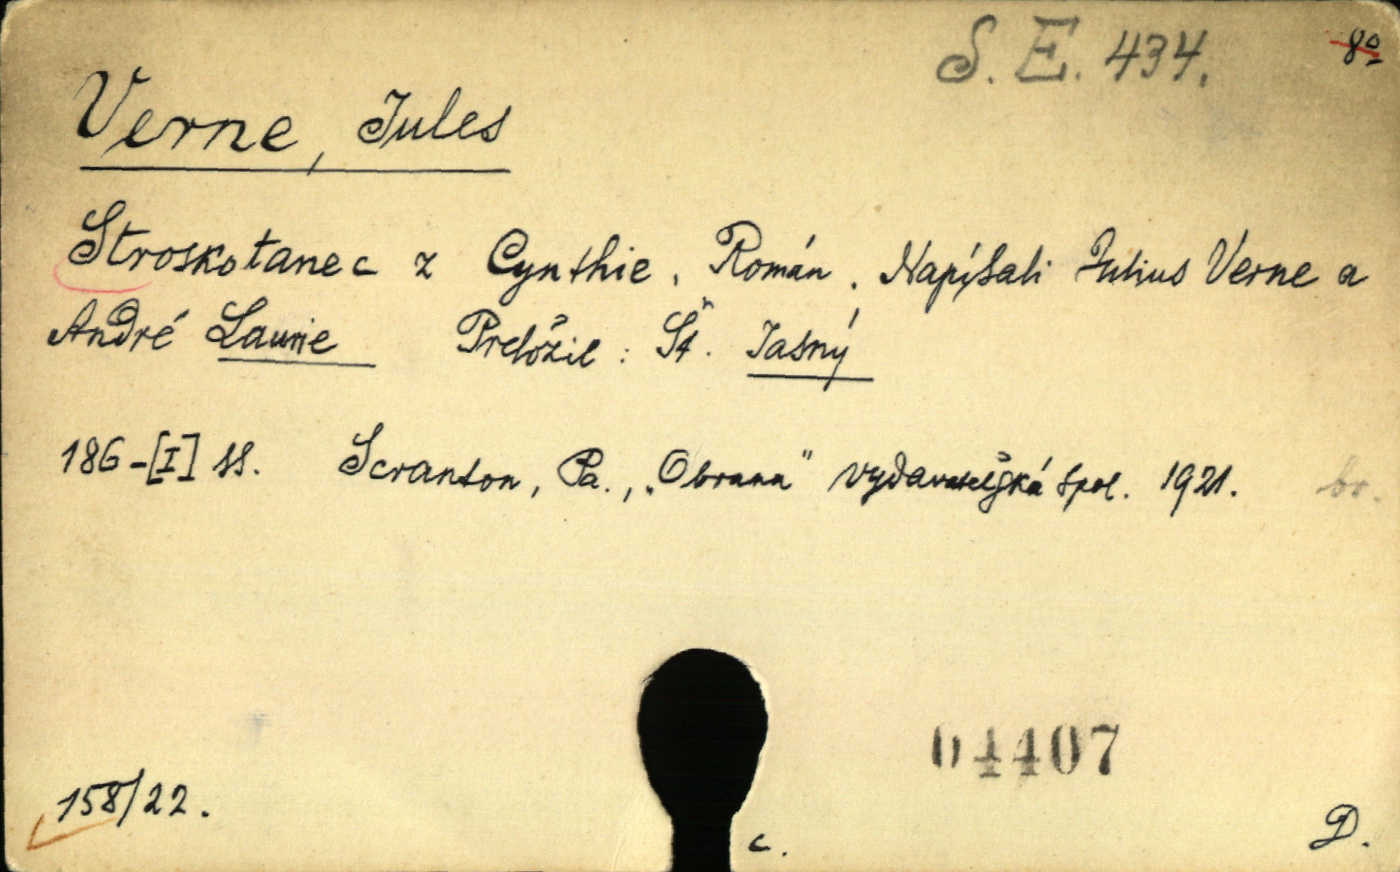 S. E. 434.
8º
Verne, Jules
Stroskotanec z Cynthie. Román. Napísali Julius Verne a
André Laurie Preložil: Št. Jasný
186-[I] ss. Scranton, Pa., „Obrana" vydavateľská spol. 1921.
br.
04407
158/22.
c.
D.